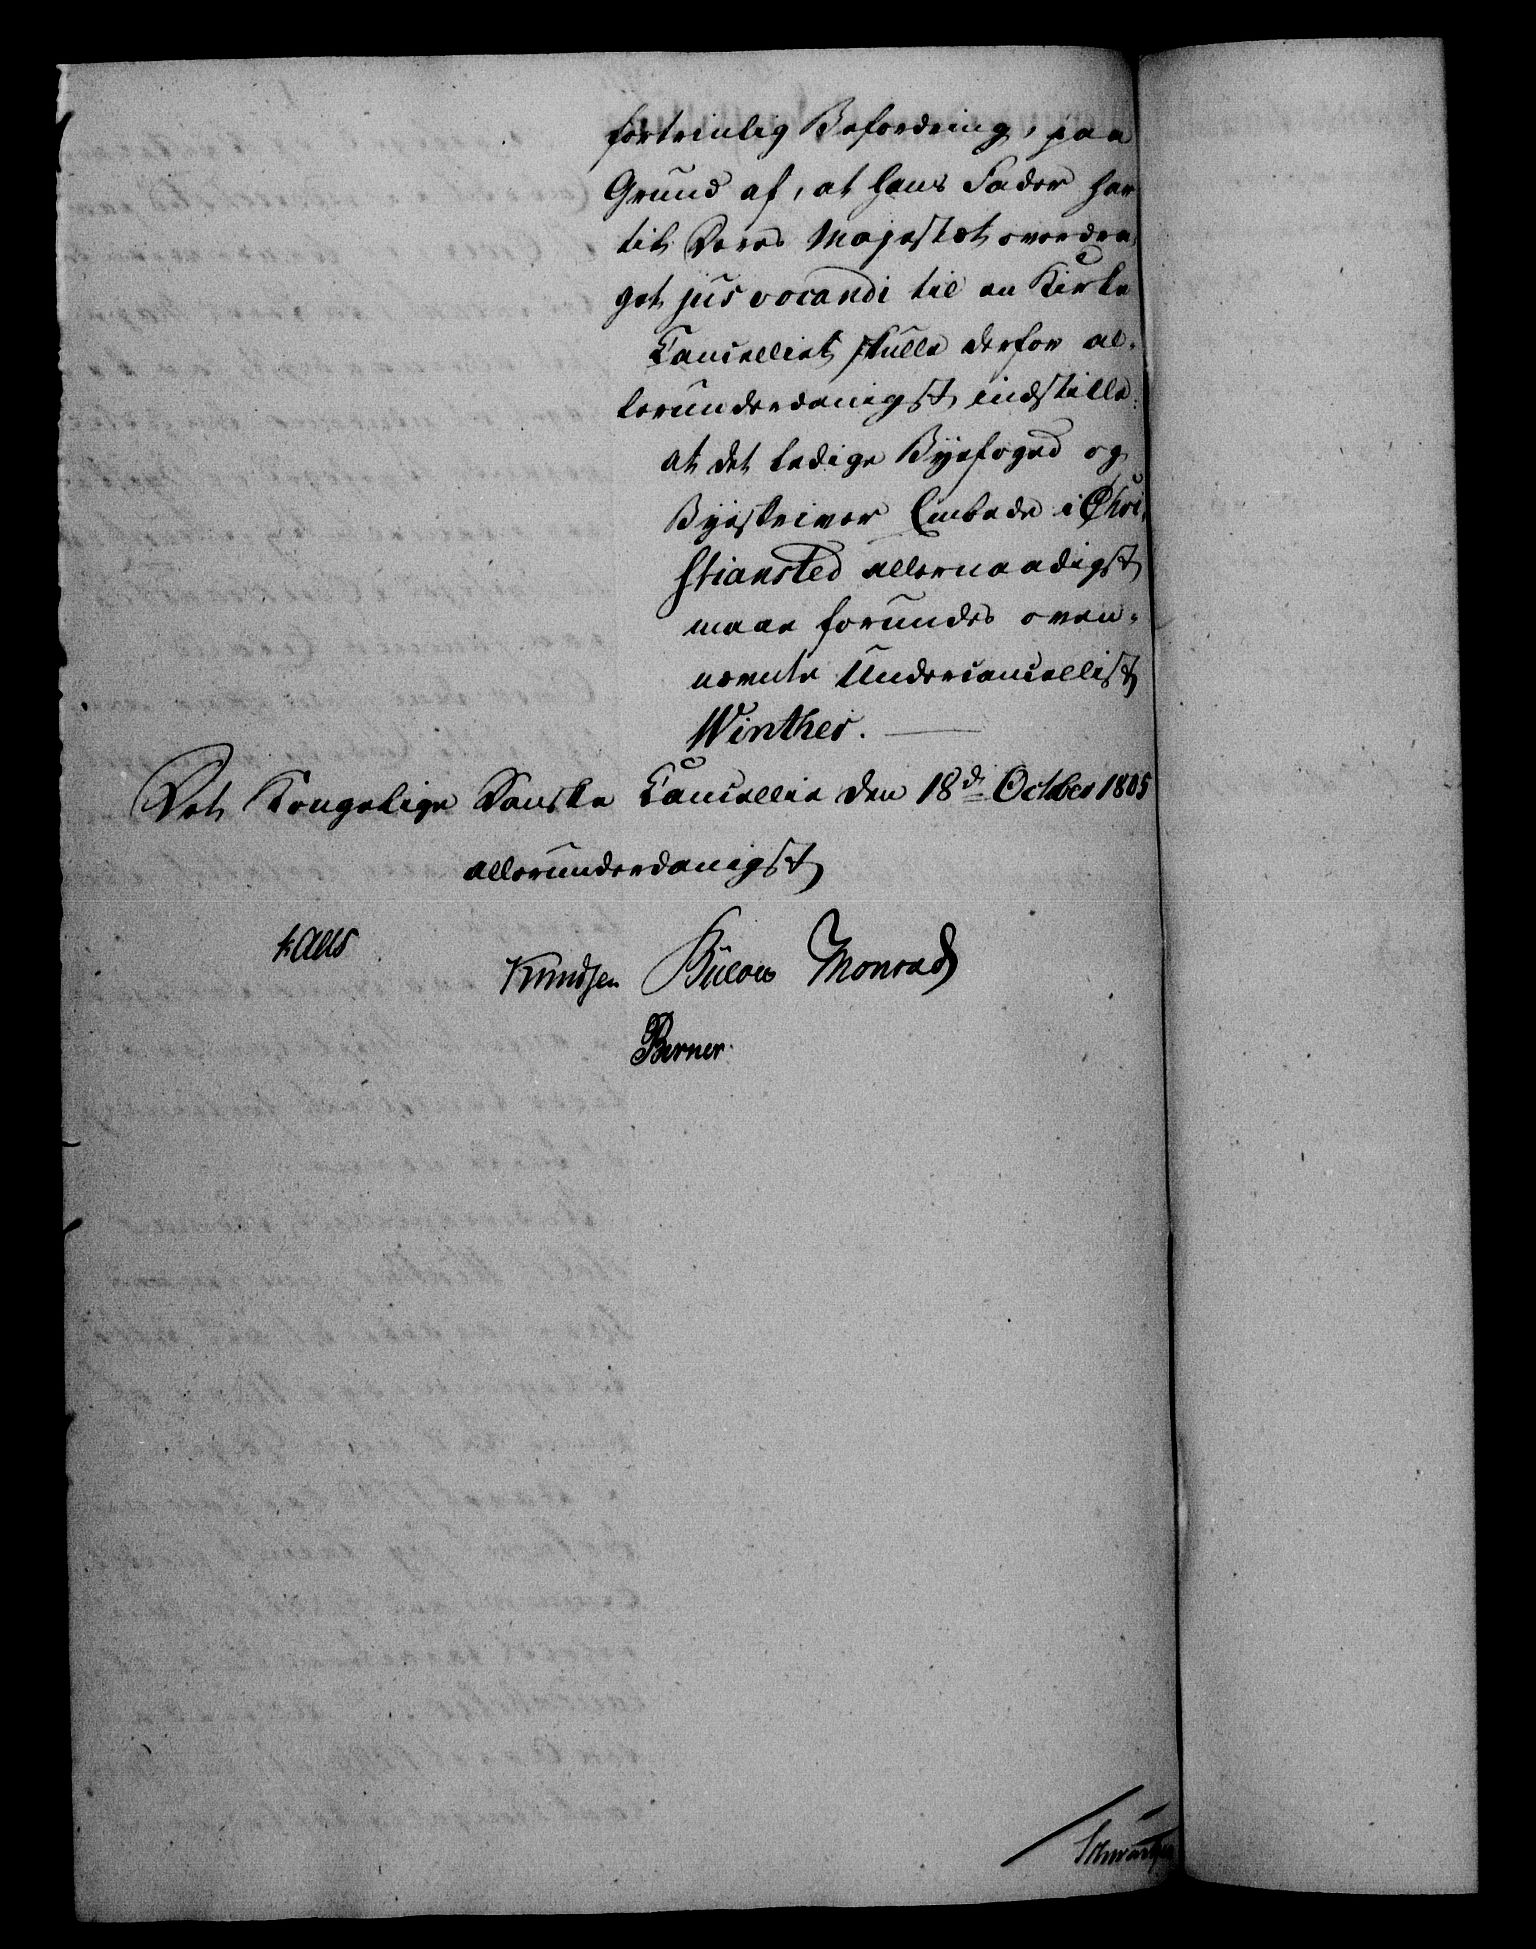 fortrinlig Befordring, paa
Grund af, at hans Fader har
til Deres Majestæt overdra-
get jus vocandi til en Kirke
Cancelliet skulle derfor al-
lerunderdanigst indstille:
at det ledige Byefoged og
Byeskriver Embede i Chri-
stiansted allernaadigst
maae forundes oven-
nævnte Undercancellist
Winther.
Det Kongelige Danske Cancellie den 18de October 1805
allerunderdanigst
Kaas
Knudsen Bülow Monrad
Berner